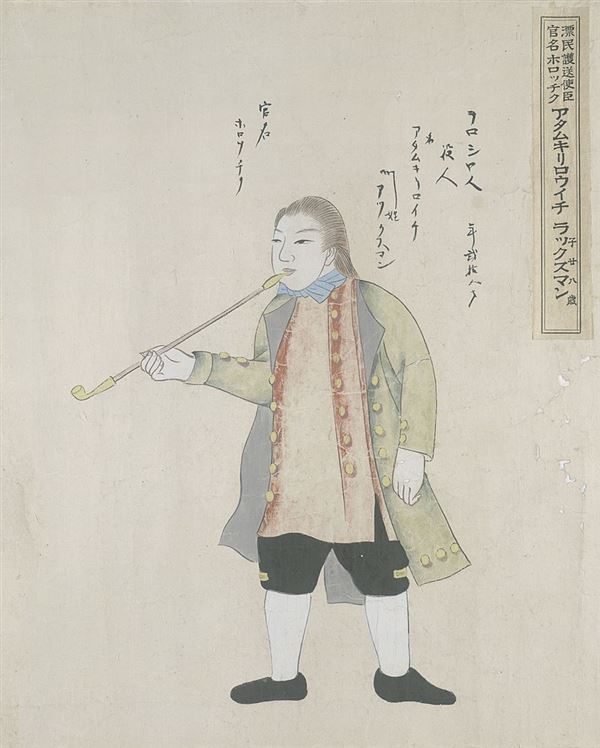 漂民護送使臣
官名ホロッチク
アタムキリロウイチ ラックズマン 子廿八歳
ヲロシヤ人
役人
名
アタムキリロイチ
姓
ラックスマン
年弐拾八才
官名
ホロツチク